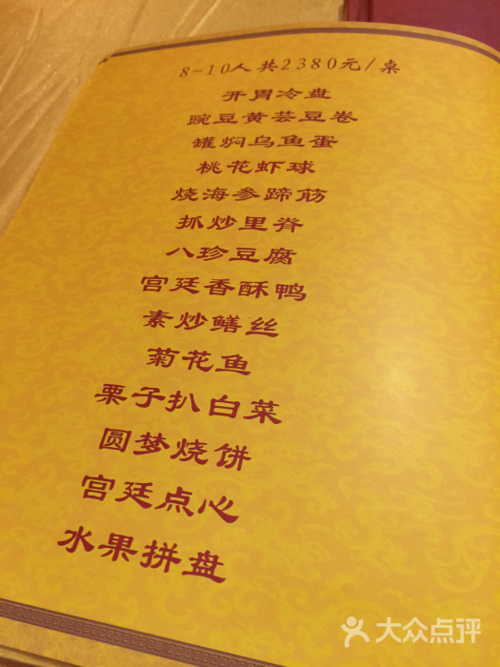 8-10人共2380元/桌
开胃冷盘
豌豆黄芸豆卷
罐焖乌鱼蛋
桃花虾球
烧海参蹄筋
抓炒里脊
八珍豆腐
宫廷香酥鸭
素炒鳝丝
菊花鱼
栗子扒白菜
圆梦烧饼
宫廷点心
水果拼盘
大众点评